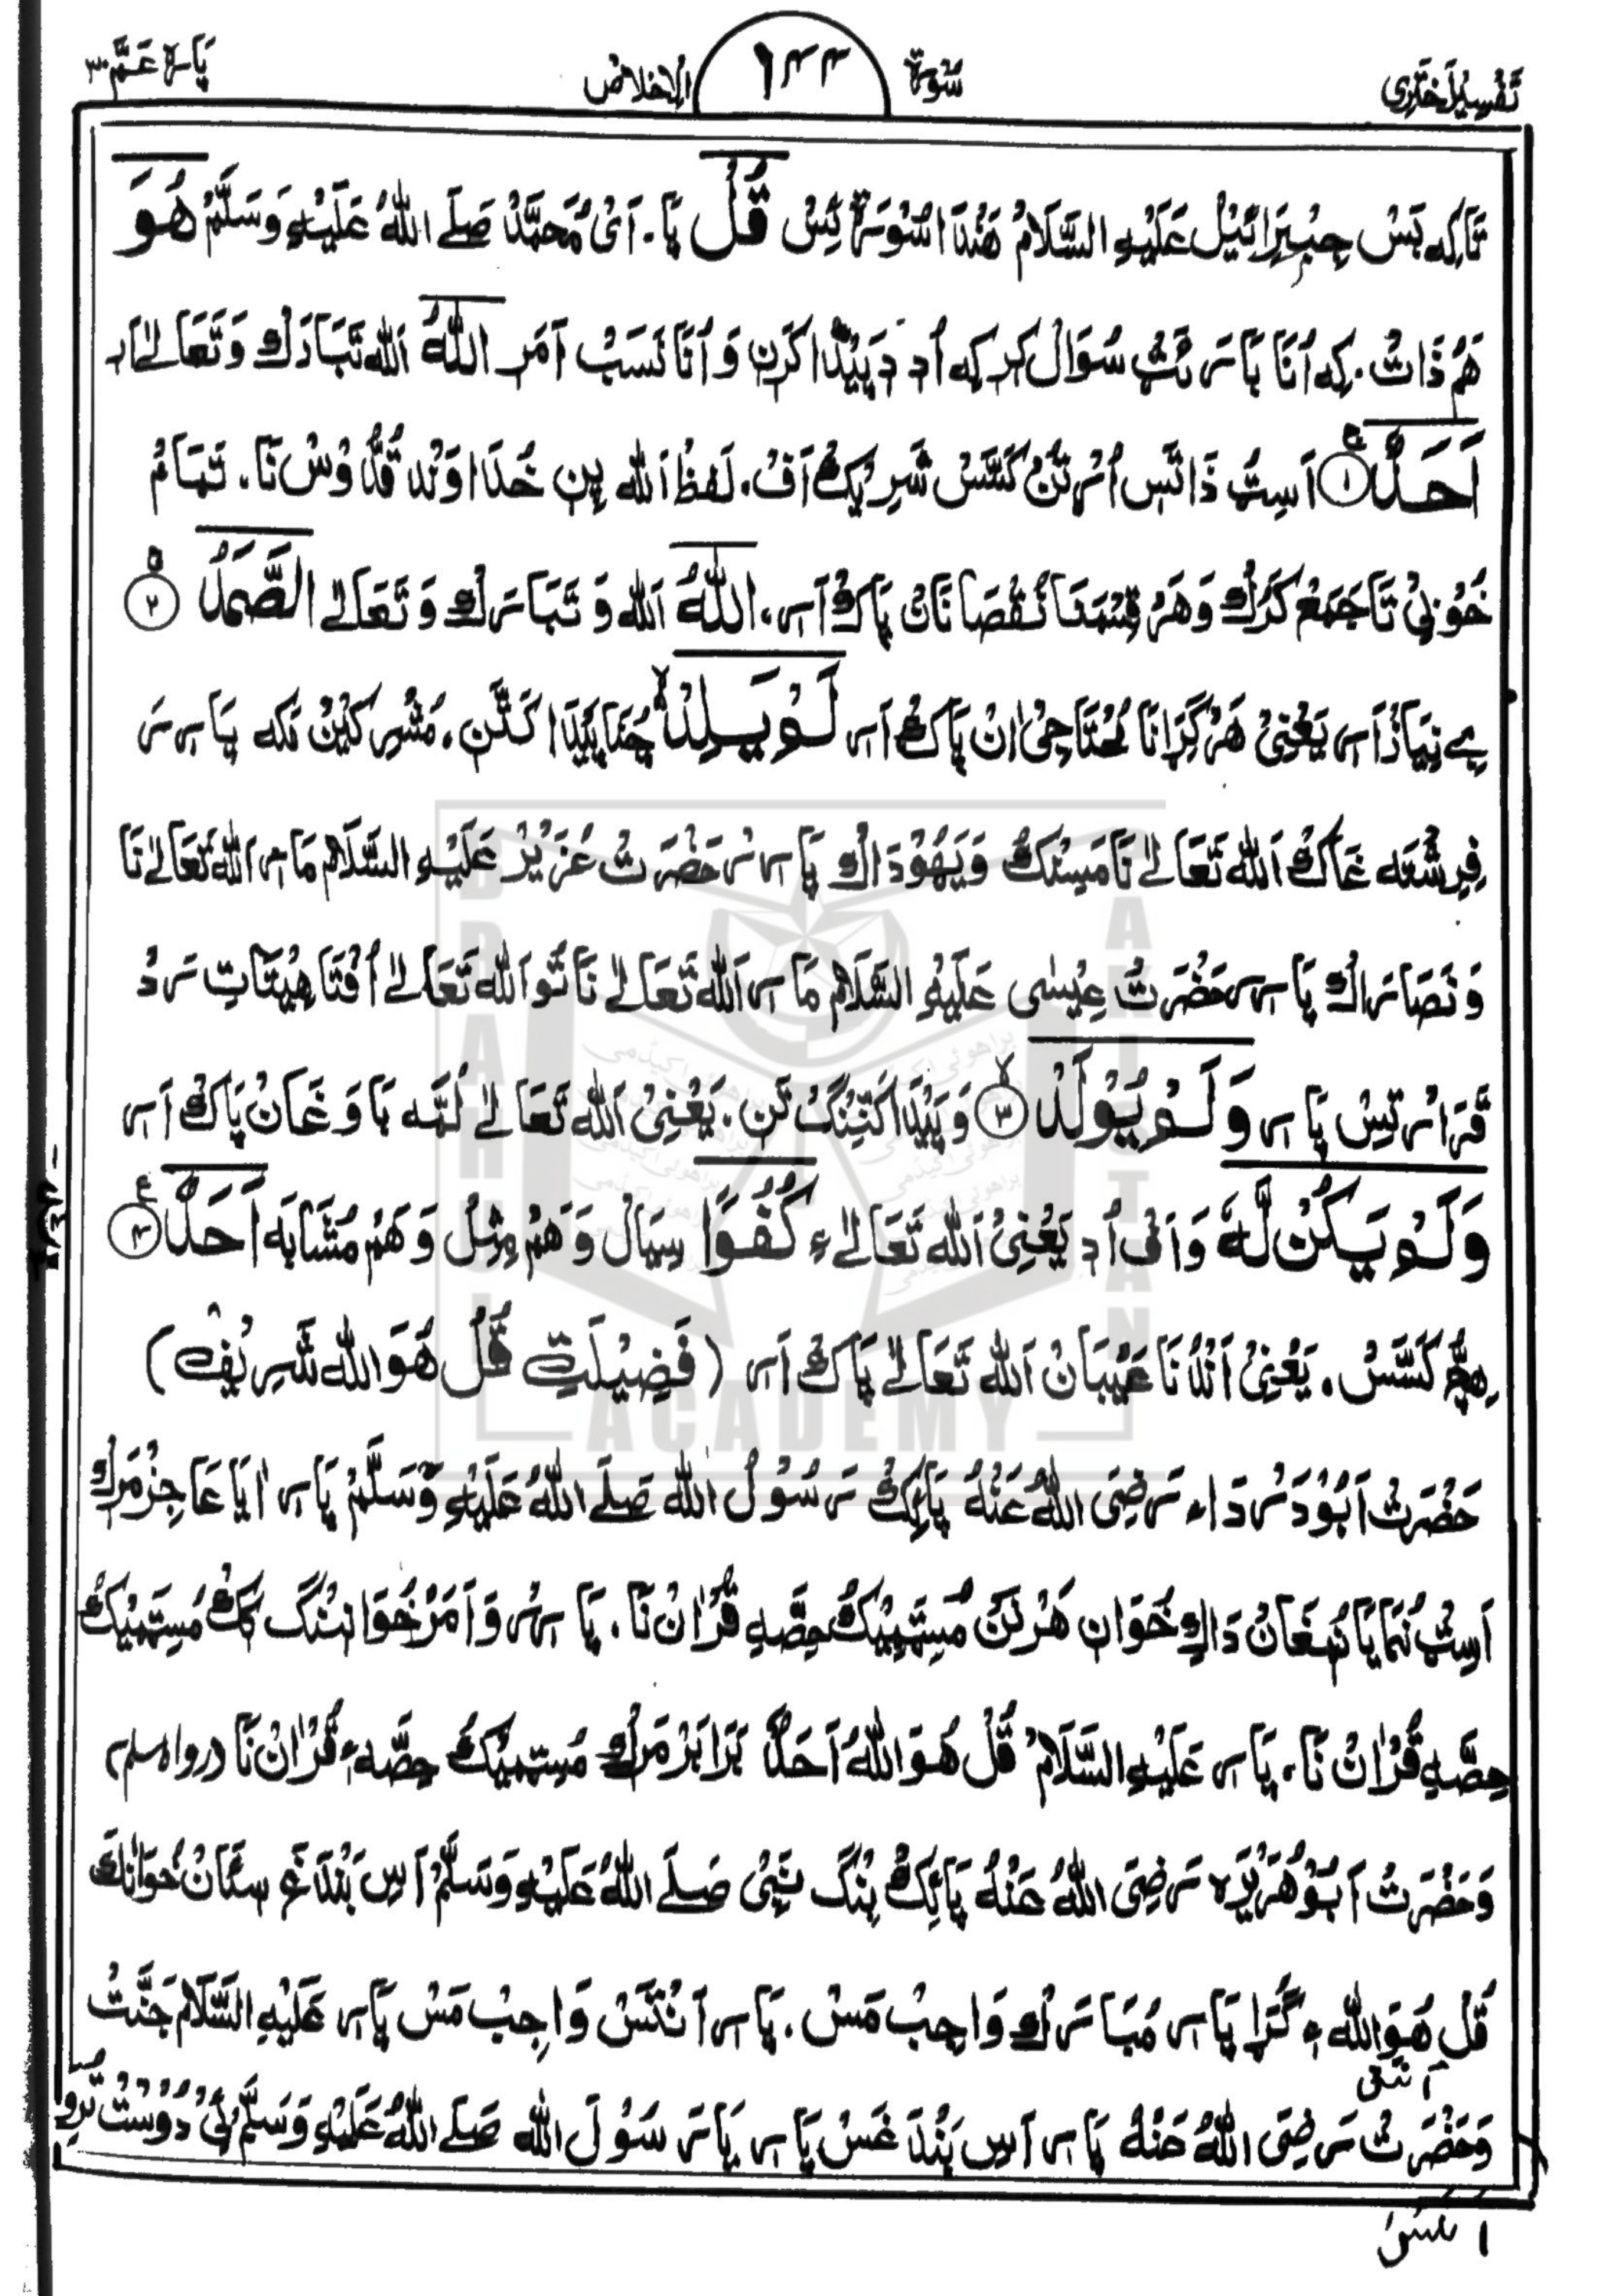 تَفْسِیْرِ اَختَرِی سُوْرَۃ ١٤٤ اَلْاِخلاص پَارَہ عَمَّ ٣٠
تَاکِہ بَسْ جِبْرَائِیْلُ عَلَیْہِ السَّلَامُ هَنْدَا سُوْرَۃ ئِسْ قُلْ پَا. اَیْ مُحَمَّدْ صَلَے اللّٰہُ عَلَیْہِ وَسَلَّمْ هُوَ
هَمْ ذَاتْ. کِہ اُنَا بَارَ نُٹْ سُوَالْ کَر کِہ اُد دِ پَیْدَا کَرِن وَ اُنَا نَسَبْ اَمَر اللّٰهُ اَللّٰہ تَبَارَکْ وَ تَعَالےٰ اَر
اَحَدٌ ١ اَسِٹ ذَاتَس اُر تُنْ کَسَّسْ شَرِیْکْ اَفْ. لَفظُ اَللّٰہ پِن خُدَاوَنْد قُدُّوْسْ نَا. تَمَامْ
خُوْبِیْ تَا جَمَعْ کَرُکْ وَ هَرْ قِسْمَنَا نُقْصَانَاتْ پَاکْ اَر. اَللّٰهُ اَللّٰہ وَ تَبَارَکْ وَ تَعَالےٰ الصَّمَدُ ٢
بِے نِیَازْ اَر یَعْنِیْ هَرْ گِرَانَا مُحْتَاجِیْ اٰنْ پَاکْ اَر لَمْ یَلِدْ چُنَا پَیْدَا کَتَّن. مُشْرِکِیْنْ مَکہ پَارَرَ
فِرِشْتَہ غَاکْ اَللّٰہ تَعَالےٰ نَا مَسِنْکْ وَ یَهُوْدَاکْ پَارَرْ حَضْرَتْ عُزَیْرْ عَلَیْہِ السَّلَامْ مَار اَللّٰہ تَعَالےٰ نَا
وَ نَصَارَاکْ پَارَر حَضْرَتْ عِیْسٰی عَلَیْہِ السَّلَامْ مَار اَللّٰہ تَعَالےٰ نَا تَو اَللّٰہ تَعَالےٰ اُفْتَا هِیْتَاتِ رَدْ
قَرَار تِسْ پَار وَلَمْ یُوْلَدْ ٣ وَ پَیْدَا کَنِّنْگْ تَن. یَعْنِیْ اَللّٰہ تَعَالےٰ لُمَّہ بَاوَ غَانْ پَاکْ اَر
وَلَمْ یَکُنْ لَّهٗ وَ اَفْ اُد یَعْنِیْ اَللّٰہ تَعَالےٰ ءِ کُفُوًا سِیَالْ وَ هَمْ مِثِلْ وَ هَمْ مُشَابَہ اَحَدٌ ٤
هِچْ کَسَّسْ. یَعْنِیْ اَنْدُنَا عَیْبَانْ اَللّٰہ تَعَالےٰ پَاکْ اَر (فَضِیْلَتِ قُلْ هُوَ اللّٰہ شَرِیْفْ)
حَضْرَتْ اَبُوْ دَرْدَاء رَضِیَ اللّٰہُ عَنْہُ پَائِکْ رَسُوْلُ اللّٰہ صَلَے اللّٰہُ عَلَیْہِ وَسَلَّمْ پَار اٰیَا عَاجِزْ مَرِکْ
اَسِٹْ نُمَا یَا نُمْغَانْ دَاکِ خُوَان هَرْنَنْ مُسِّمِیْکْ حِصَّہِ قُرْاٰنْ نَا. پَارَرْ وَ اَمَرْ خُوَانِنْگ کِکْ مُسِّمِیْکْ
حِصَّہِ قُرْاٰنْ نَا. پَار عَلَیْہِ السَّلَامْ قُلْ هُوَ اللّٰہُ اَحَدٌ بَرَابَرْ مَرِکْ مُسِّمِیْکْ حِصَّہءِ قُرْاٰنْ نَا (رواہ مسلم)
وَحَضْرَتْ اَبُوْ هُرَیْرَہ رَضِیَ اللّٰہُ عَنْہُ پَائِکْ بِنْگ نَبِیْ صَلَے اللّٰہُ عَلَیْہِ وَسَلَّمْ اَس بَنْدَغ سِتَانْ خُوَانِکْ
قُلْ هُوَ اللّٰہ ءِ گُڑَا پَار مُبَارَکْ وَاجِبْ مَسْ. پَار اَنْتَسْ وَاجِبْ مَسْ پَار عَلَیْہِ السَّلَامْ جَنَّتْ
وَحَضْرَتْ اَنَسْ رَضِیَ اللّٰہُ عَنْہُ پَار اَس بَنْدَغَسْ پَار یَا رَسُوْلَ اللّٰہ صَلَے اللّٰہُ عَلَیْہِ وَسَلَّمْ اِیْ دُوْسْتْ تِرِو
BRAHUI
AKISTAN
ACADEMY